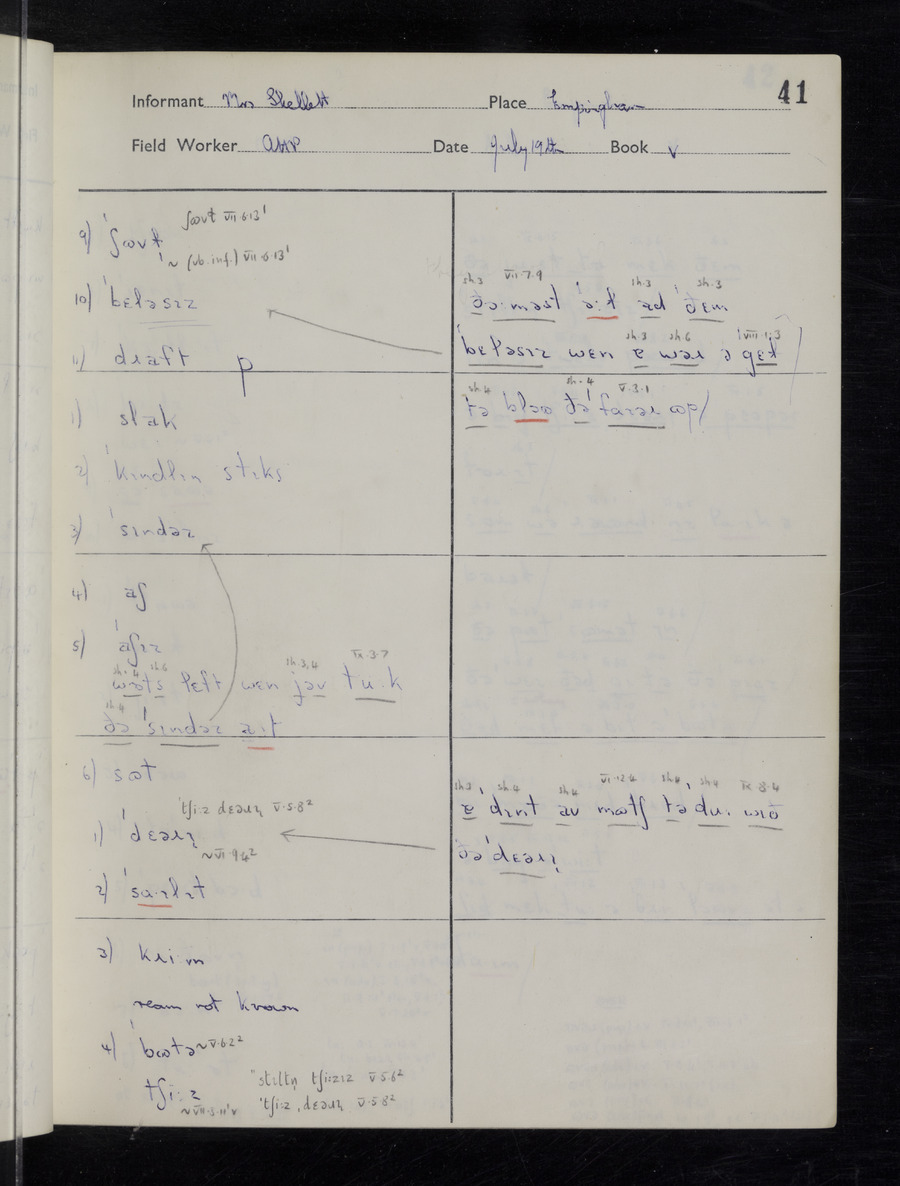 41
Informant Mrs Place Empingham
Field Worker Date July 19th Book V
ʃɒvt VII·6·13¹
9) ˈʃɒvɫ
~ (vb. inf.) VII·6·13¹
10) ˈbɛləsɪz
11) dɹaft p
sh.3 VII·7·9 sh.3 sh.3
ðəːməst ad ðɛm
sh.3 sh.6 VIII·1·3
ˈbɛləsɪz wɛn ə wəɹ ə gɛt
sh.4 sh.4 V·3·1
tə blɔɷ ðə faɪəɹ ɷp/
1) slak
2) ˈkɪndlɪn stɪks
3) ˈsɪndəz
4) aʃ
5) ˈaʃɪz
sh.4 sh.6 sh.3,4 IX·3·7
wɒts lɛft wɛn jəv tu·k
sh.4
ðə ˈsɪndəz aɪt
6) sɷt
ˈtʃiːz dɛəɹɪ V·5·8²
1) ˈdɛəɹɪ
~VI·9·4²
2) ˈsaːlɪt
sh.3 sh.4 sh.4 VI·12·4 sh.4 sh.4 IX·8·4
ə dɪnt av mɷtʃ tə duː wɪð
ðə ˈdɛəɹɪ
3) kɹiːm
ream not known
4) ˈbɷtə ~V·6·2²
tʃiːz
~VII·5·11
ˈstɪltn̩ tʃiːzɪz V·5·6²
ˈtʃiːz ˌdɛəɹɪ V·5·8²